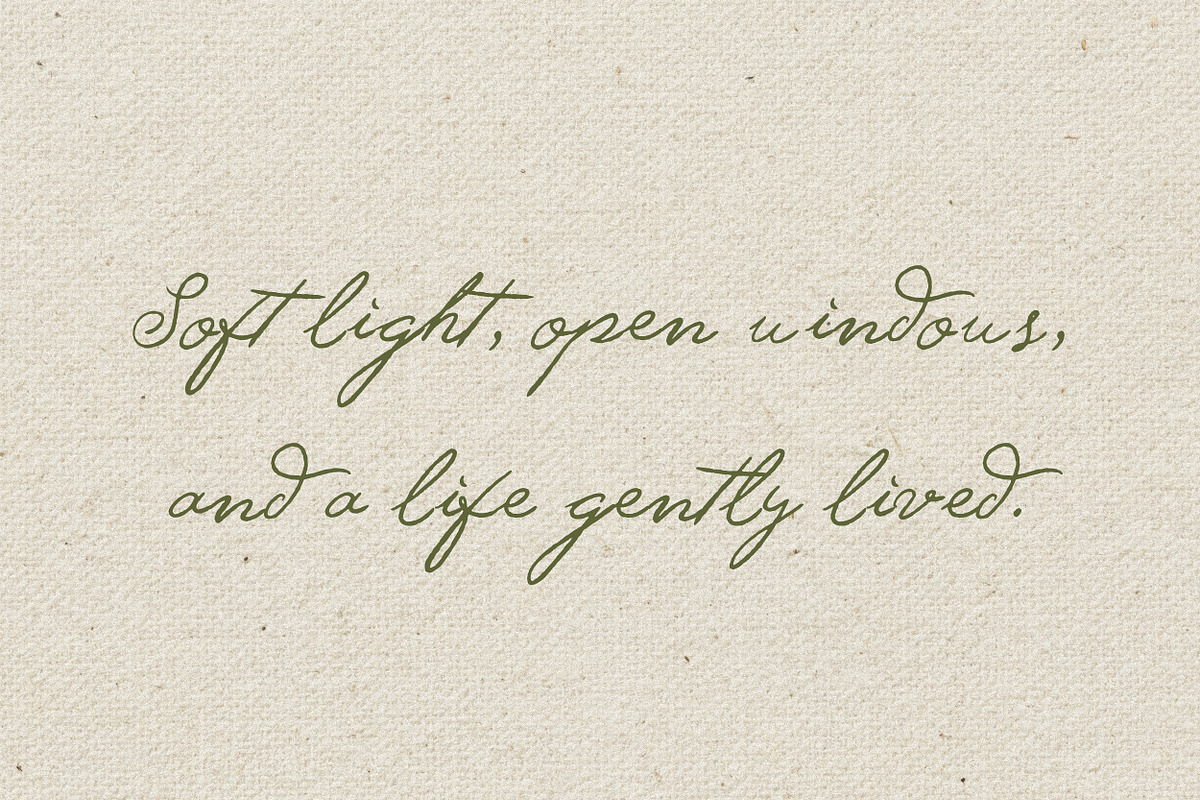 Soft light, open windows,
and a life gently lived.